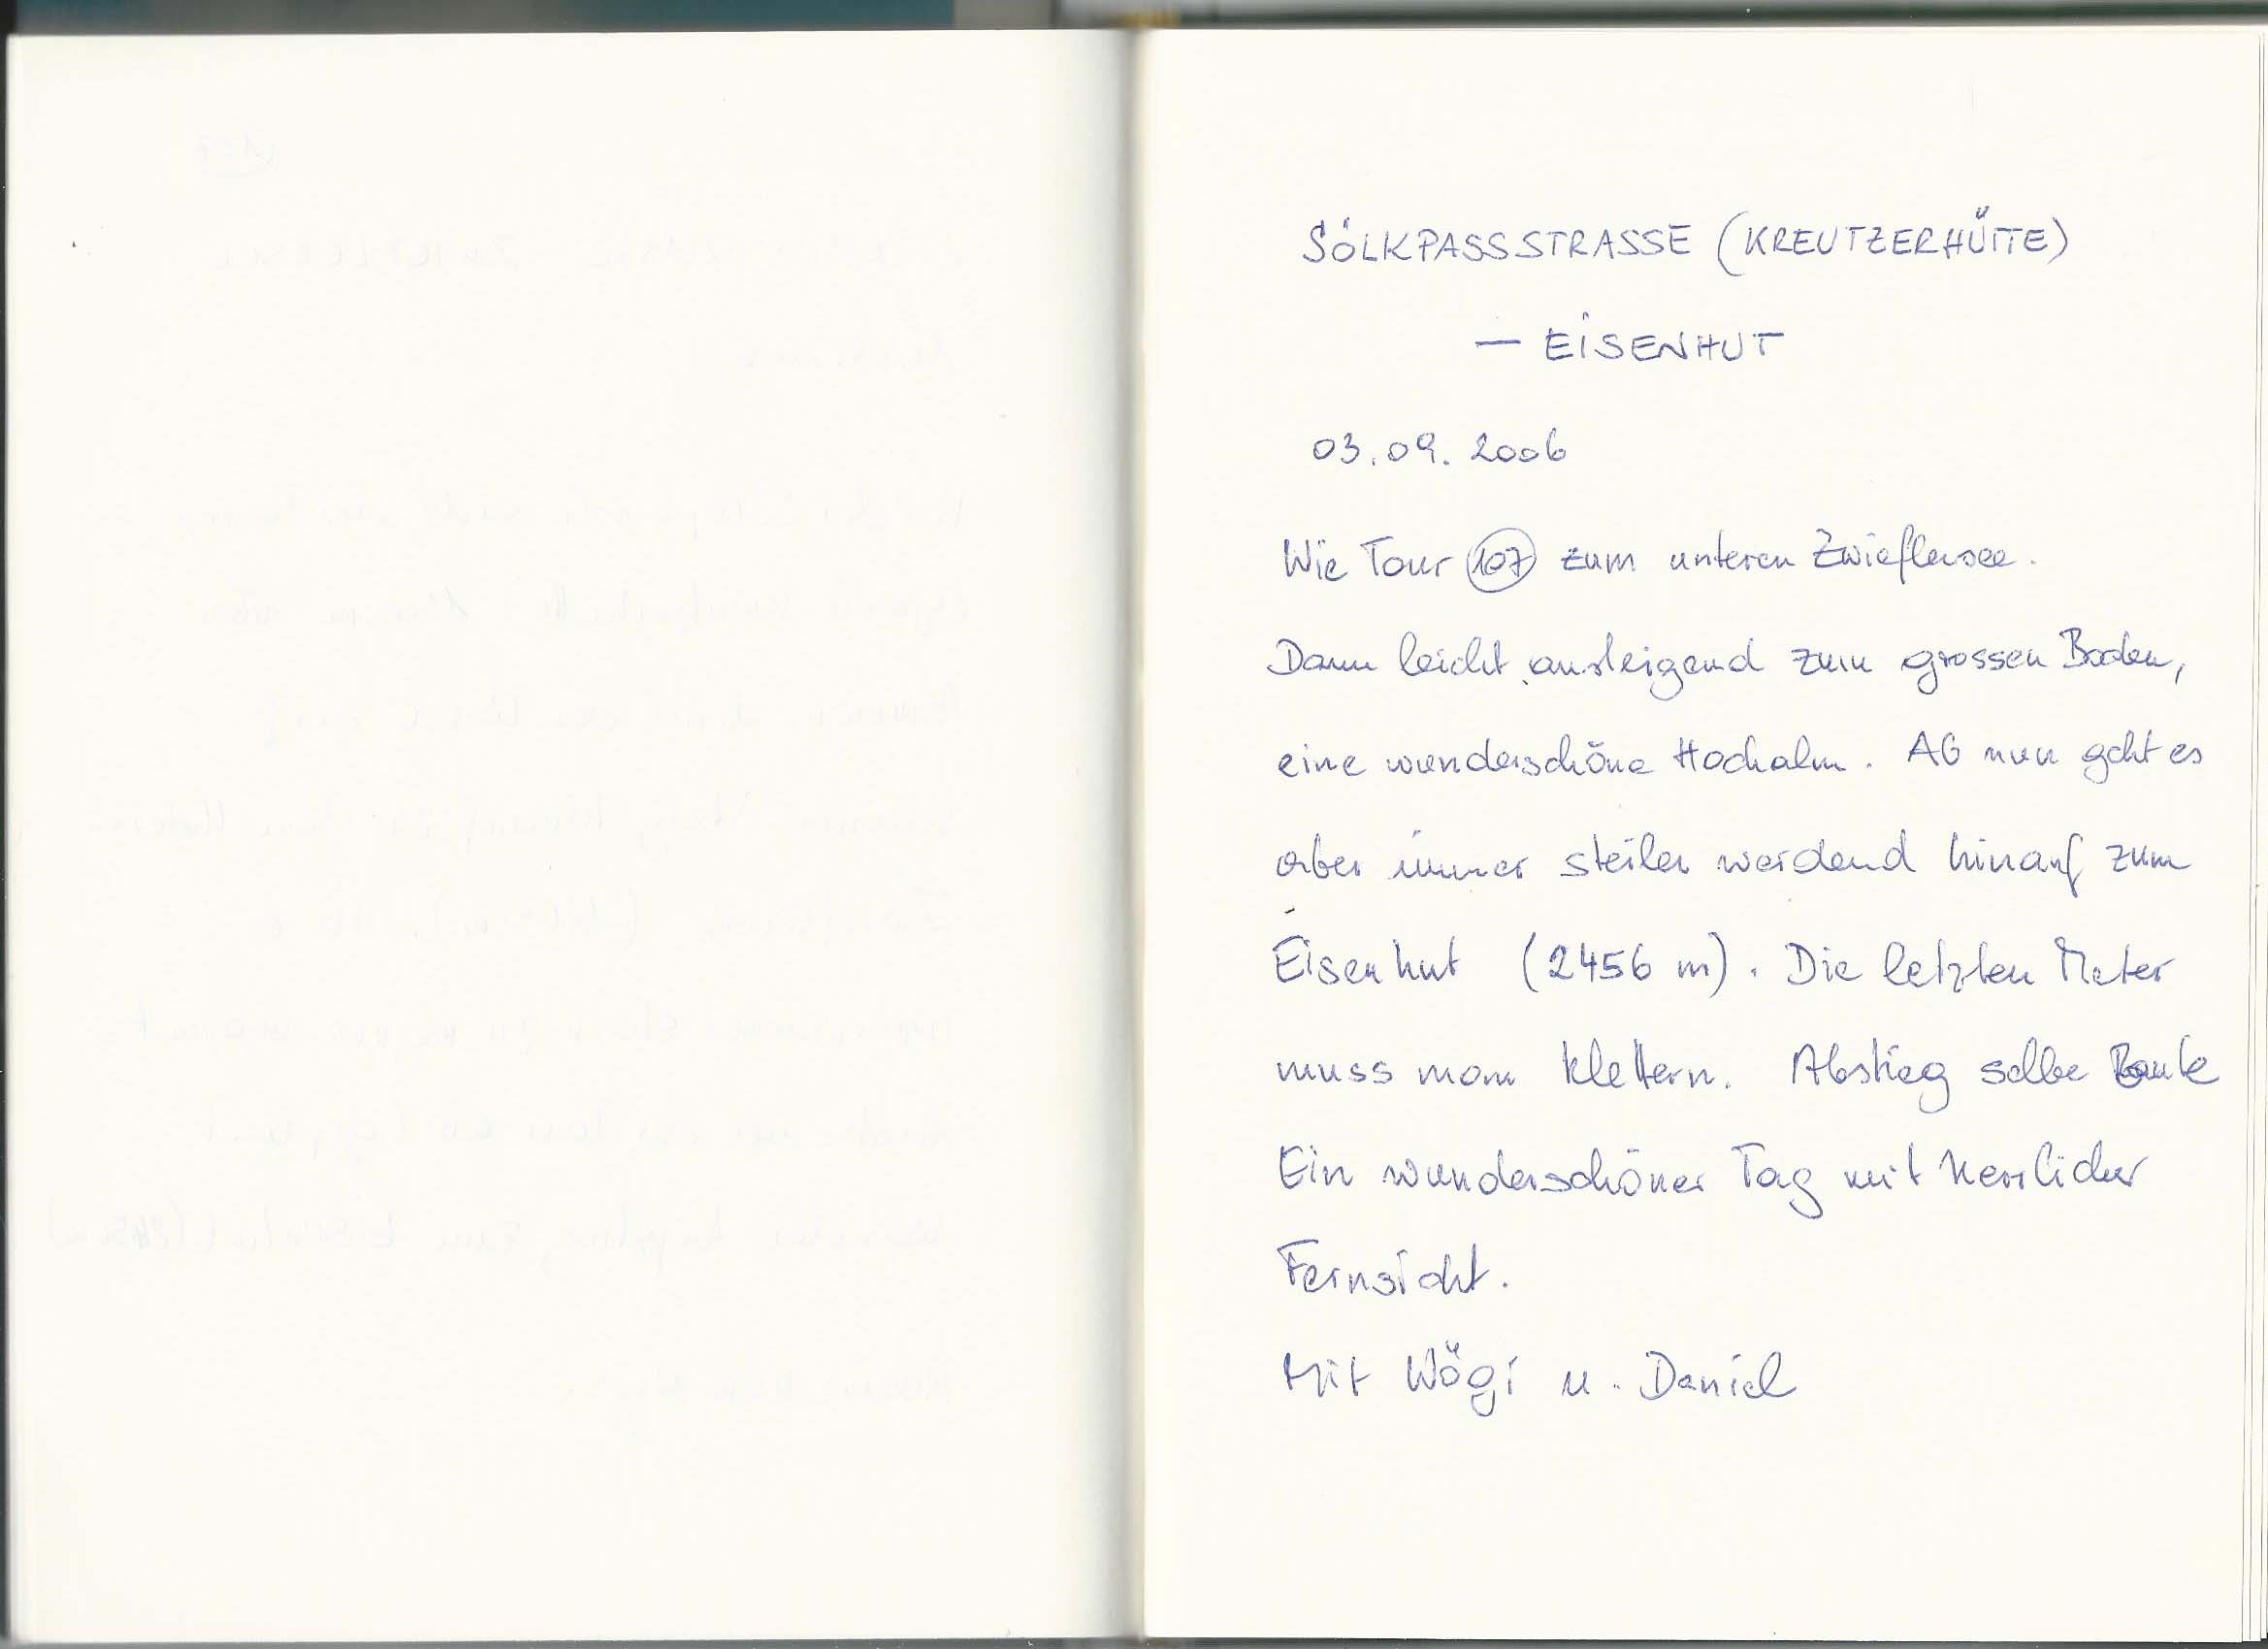 SÖLKPASSSTRASSE (KREUTZERHÜTTE)
— EISENHUT
03.09.2006
Wie Tour 107 zum unteren Zwieflersee.
Dann leicht ansteigend zum grossen Boden,
eine wunderschöne Hochalm. Ab nun geht es
aber immer steiler werdend hinauf zum
Eisenhut (2456 m). Die letzten Meter
muss man klettern. Abstieg selbe Route
Ein wunderschöner Tag mit herrlicher
Fernsicht.
Mit Wögi u. Daniel